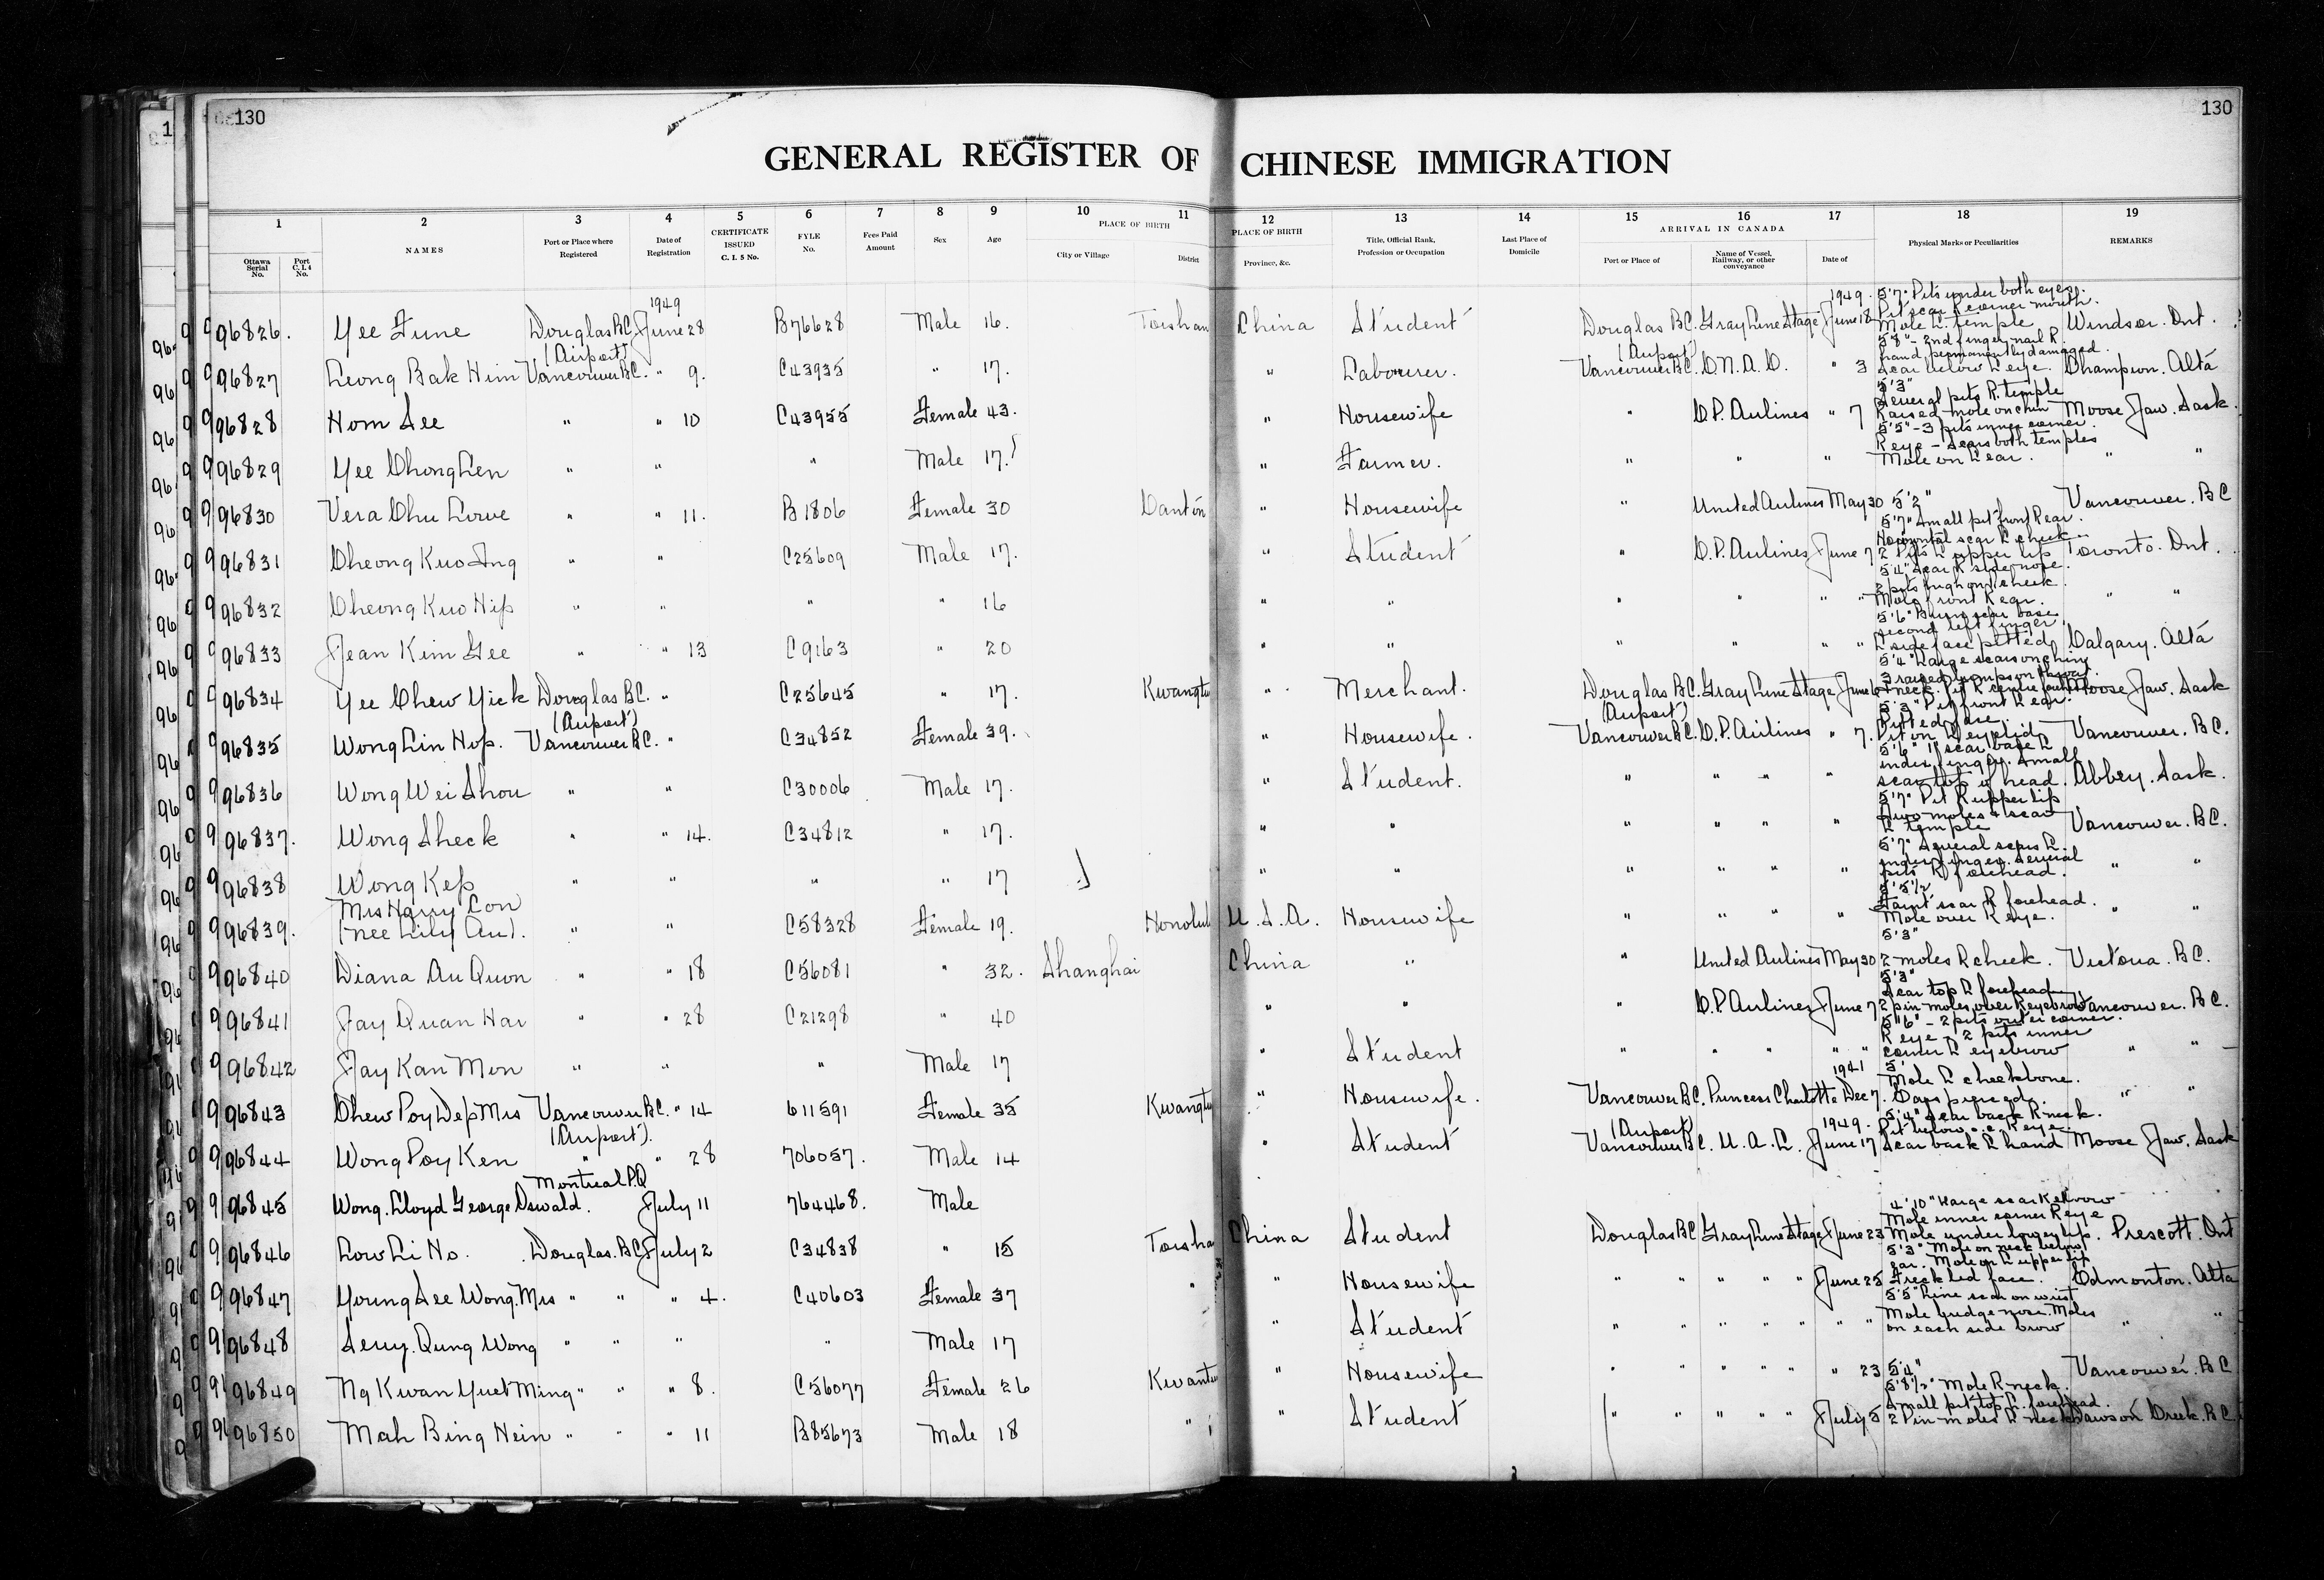 130
130
GENERAL REGISTER OF CHINESE IMMIGRATION
1 2 3 4 5 6 7 8 9 10 11 12 13 14 15 16 17 18 19
Ottawa Serial No. Port C.I.4 No. NAMES Port or Place where Registered Date of Registration CERTIFICATE ISSUED C. I. 5 No. FYLE No. Fees Paid Amount Sex Age PLACE OF BIRTH City or Village District PLACE OF BIRTH Province, &c. Title, Official Rank, Profession or Occupation Last Place of Domicile ARRIVAL IN CANADA Port or Place of Name of Vessel, Railway, or other conveyance Date of Physical Marks or Peculiarities REMARKS
1949 1949.
96826. Yee Fune Douglas B.C. June 28 B76628 Male 16. Toishan China Student Douglas B.C. Gray Line Stage June 18 5'7" Pits under both eyes. Pit scar R corner mouth. Mole L. temple Windsor. Ont.
96827 Leong Bak Him (Airport) Vancouver B.C. " 9. C43935 " 17. " Labourer. (Airport) Vancouver B.C. C.N.A.C. " 3 5'8" - 2nd finger nail R. hand permanently damaged. Scar below L eye. Champion. Alta
96828 Hom See " " 10 C43955 Female 43. " Housewife " C.P. Airlines " 7 5'3" Several pits R. temple Raised mole on chin Moose Jaw. Sask.
96829 Yee Chong Len " " " Male 17. " Farmer. " " " 5'5" - 3 pits inner corner R eye - Scars both temples Mole on L ear. " "
96830 Vera Chu Lowe " " 11. B1806 Female 30 Canton " Housewife " United Airlines May 30 5'2" Vancouver. B.C
96831 Cheong Kuo Ing " " C25609 Male 17. " Student " C.P. Airlines June 7 5'7" Small pit front R ear. Horizontal scar L cheek 2 Pits L upper lip Toronto. Ont.
96832 Cheong Kuo Nip " " " " 16 " " " " " " 5'4" Scar R side nose. 2 pits high on L cheek. Mole front R ear. " "
96833 Jean Kim Gee " " 13 C9163 " 20 " " " " " " 5'6" Burn scar base second left finger. L side face pitted Calgary. Alta
96834 Yee Chew Yick Douglas B.C. " C25645 " 17. Kwangtu " Merchant. Douglas B.C. Gray Line Stage June 6 5'4" Large scars on chin 3 raised bumps on neck. Pit R centre Moose Jaw. Sask
96835 Wong Lin Hop. (Airport) Vancouver B.C. " C34852 Female 39. " Housewife. (Airport) Vancouver B.C. C.P. Airlines " 7. 5'3" Pit front L ear. Pitted face. Pit on L eyelid Vancouver. B.C.
96836 Wong Wei Shou " " C30006 Male 17. " Student. " " " " 5'6" 1" scar base L index finger. Small scar top of head. Abbey. Sask.
96837. Wong Sheck " " 14. C34812 " 17. " " " " " " 5'7" Pit R upper lip Two moles & scar L temple Vancouver. B.C.
96838 Wong Kep " " " " 17 " " " " " " 5'7" Several scars L. index finger. Several pits R forehead. " "
96839. Mrs Harry Lon (nee Lily Au). " " C58328 Female 19. Honolul U.S.A. Housewife " " " " 5'5½ Faint scar R forehead. Mole over R eye. " "
96840 Diana Au Quon " " 18 C56081 " 32. Shanghai China " " United Airlines May 30 5'3" 2 moles R cheek. Victoria. B.C.
96841 Jay Quan Hai " " 28 C21298 " 40 " " " C.P. Airlines June 7 5'3" Scar top L forehead 2 pin moles over R eyebrow Vancouver. B.C.
96842 Jay Kan Mon " " " Male 17 " Student " " " " " 5'6" - 2 pits outer corner R eye - 2 pits inner corner L eyebrow " "
1941
96843 Chew Poy Dep Mrs Vancouver B.C. " 14 611591 Female 35 Kwangtu " Housewife. Vancouver B.C. Princess Charlotte Dec 7. 5' Mole L cheekbone. Ears pierced. " "
1949.
96844 Wong Poy Ken (Airport). " " 28 706057. Male 14 " Student (Airport) Vancouver B.C. U.A.L. June 17 5'4" Scar back R neck. Pit below R eye Scar back L hand Moose Jaw. Sask
96845 Wong. Lloyd George Oswald. Montreal P.Q July 11 764468. Male
96846 Low Li No. Douglas. B.C. July 2 C34838 " 15 Toisha China Student Douglas B.C. Gray Line Stage June 23 4'10" Large scar R elbow Mole inner corner R eye Mole under lower lip. Prescott. Ont
96847 Young See Wong. Mrs " " " 4. C40603 Female 37 " " Housewife " " " " " June 25 5'3" Mole on neck below ear. Mole on L upper lip Freckled face. Edmonton. Alta
96848 Seuy. Qung Wong " " " " Male 17 " Student " " " " " " " 5'5" Line scar on wrist Mole bridge nose. Moles on each side brow " "
96849 Ng Kwan Yuet Ming " " " 8. C56077 Female 26 Kwantu " Housewife " " " " " " 23 5'4" Vancouver. B.C
96850 Mah Bing Hein " " " 11 B85673 Male 18 " " Student " " " " " July 5 5'8½" Mole R neck. Small pit top L. forehead. 2 Pin moles L neck Dawson Creek. B.C.